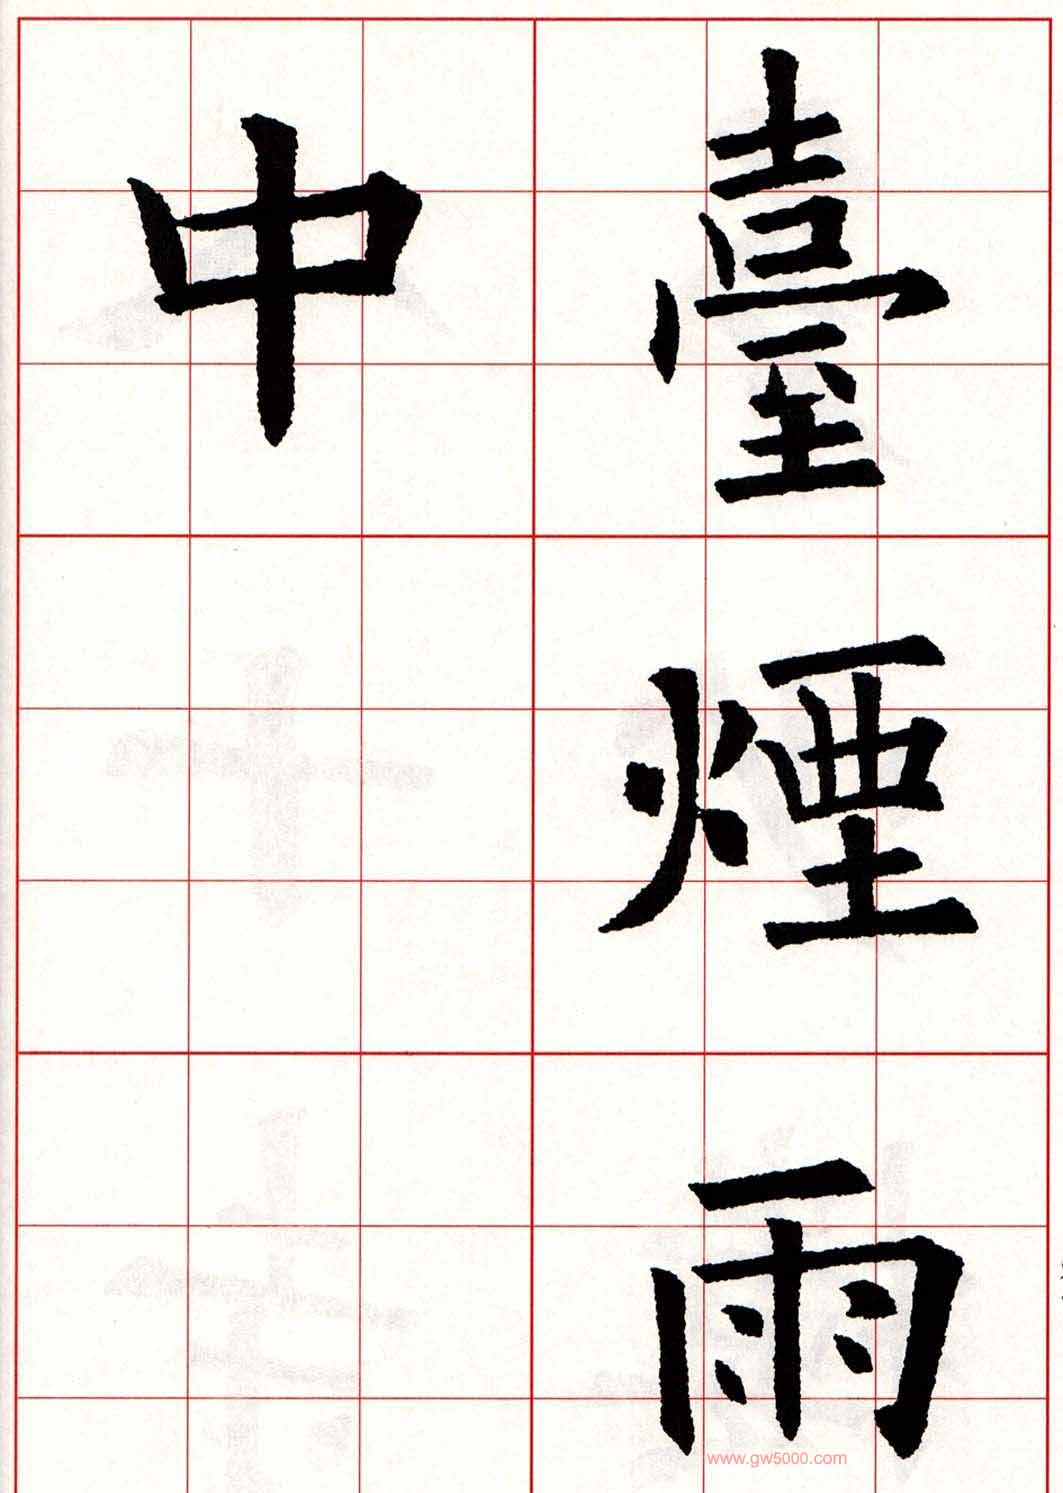 臺煙雨
中
www.gw5000.com